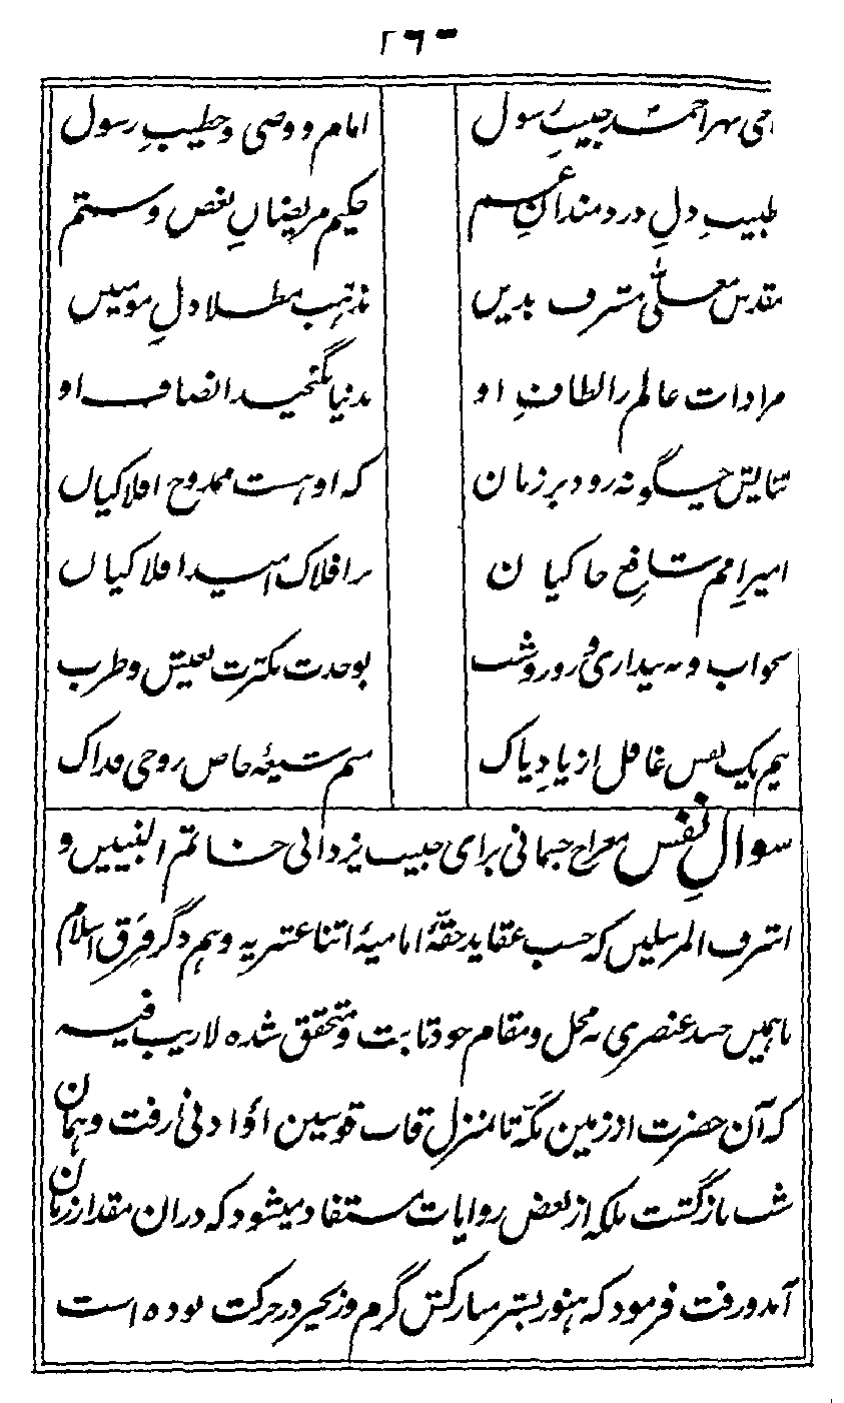 ۲۶۳
اخی مہر احمد حبیبِ رسول امام و وصی و خطیبِ رسول
طبیبِ دلِ دردمندانِ غم حکیم مریضانِ نغص و ستم
مقدس معلّٰی مشرف بدیں مذہب مطلا دلِ مومنیں
مرادات عالم ز الطافِ او بدنیا نگنجید انصاف او
ستایش چگونه رود بر زبان که او هست ممدوح افلاکیاں
امیرِ امم شافعِ خاکیان بر افلاک امید افلاکیاں
بخواب و به بیداری و روز و شب بوحدت بکثرت بعیش و طرب
نیم یک نفس غافل از یادِ پاک منم شیعۂ خاص روحی فداک
سوالِ نفس معراج جسمانی برای حبیب یزدانی خاتم النبیین و
اشرف المرسلین که حسب عقاید حقّهٔ امامیهٔ اثنا عشریه و هم دگر فِرَق اسلام
با همیں جسد عنصری به محل و مقام خود ثابت و متحقق شده لاریب فیه
که آن حضرت از زمین مکّه تا منزل قاب قوسین او ادنیٰ رفت و همان
شب بازگشت بلکه از بعض روایات مستفاد میشود که دران مقدار زمان
آمد و رفت فرمود که هنوز بستر مبارکش گرم و زنجیر در حرکت بوده است